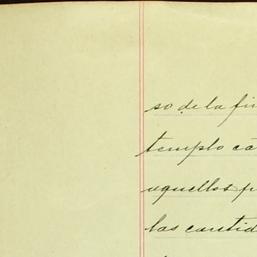 so de la fin
templo ca
aquellos p
las cantid